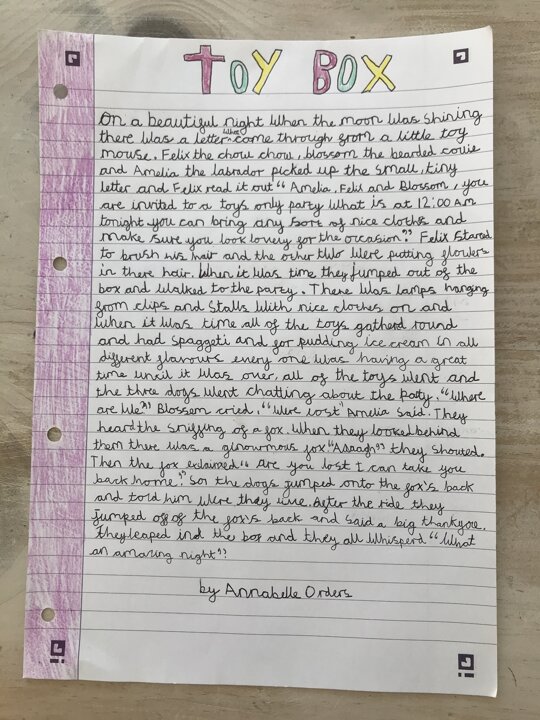 TOY BOX
On a beautiful night when the moon was shining
there was a letter what come through from a little toy
mouse. Felix the chow chow, blossom the bearded collie
and Amelia the labrador picked up the small, tiny
letter and Felix read it out "Amelia, Felix and Blossom, you
are invited to a toys only party what is at 12:00 AM
tonight you can bring any sort of nice cloths and
make sure you look lovely for the occasion." Felix started
to brush his hair and the other two were putting flowers
in there hair. When it was time they jumped out of the
box and walked to the party. There was lamps hanging
from clips and stalls with nice clothes on and
when it was time all of the toys gatherd round
and had spaggeti and for pudding ice cream in all
different flavours every one was having a great
time until it was over. all of the toys went and
the three dogs went chatting about the party. "Where
are we?" Blossom cried. "Were lost" Amelia said. They
heard the sniffing of a fox. When they looked behind
them there was a ginowmous fox "Aaaagh" they shouted.
Then the fox exclaimed "are you lost I can take you
back home." So the dogs jumped onto the fox's back
and told him were they live. After the ride they
jumped off of the fox's back and said a big thankyou.
they leaped ind the box and they all whisperd "What
an amazing night"!
by Annabelle Orders